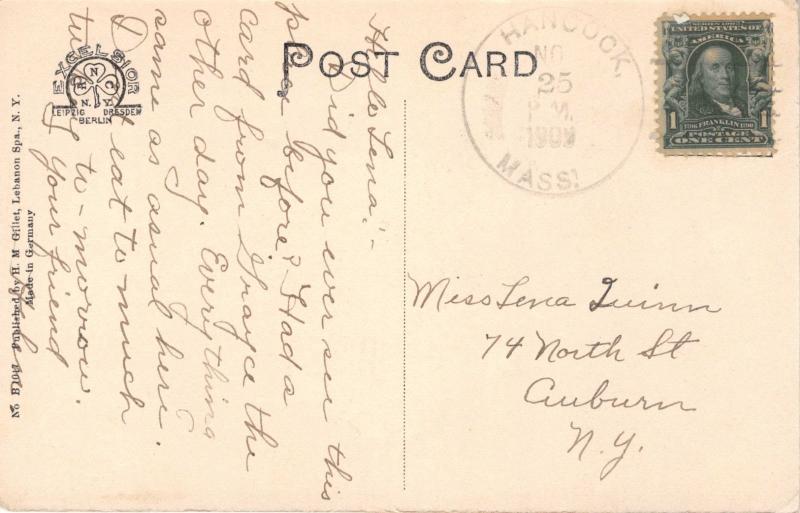 POST CARD
EXCELSIOR
N.Y.
LEIPZIG DRESDEN
BERLIN
HANCOCK,
NO
25
P.M.
MASS.
SERIES 1902
UNITED STATES OF
AMERICA
1 1
1706 FRANKLIN 1790
POSTAGE
ONE CENT
Hello Lena:-
Did you ever see this
place before? Had a
card from Grayce the
other day. Everything
same as usual here.
Don't eat to much
turkey to-morrow.
Your friend
Miss Lena Quinn
74 North St
Auburn
N.Y.
Published by H. M. Gillet, Lebanon Spa., N. Y.
Made in Germany